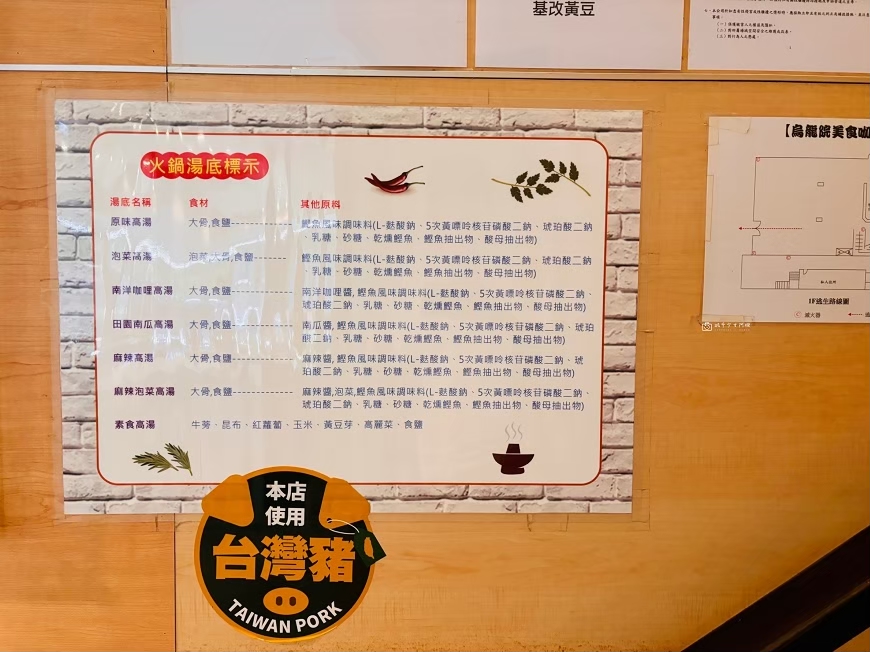 基改黃豆
【烏龍院美食咖
火鍋湯底標示
湯底名稱 食材 其他原料
原味高湯 大骨,食鹽------------ 鰹魚風味調味料(L-麩酸鈉、5次黃嘌呤核苷磷酸二鈉、琥珀酸二鈉
、乳糖、砂糖、乾燻鰹魚、鰹魚抽出物、酸母抽出物)
泡菜高湯 泡菜,大骨,食鹽------- 鰹魚風味調味料(L-麩酸鈉、5次黃嘌呤核苷磷酸二鈉、琥珀酸二鈉
、乳糖、砂糖、乾燻鰹魚、鰹魚抽出物、酸母抽出物)
南洋咖哩高湯 大骨,食鹽------------ 南洋咖哩醬, 鰹魚風味調味料(L-麩酸鈉、5次黃嘌呤核苷磷酸二鈉、
琥珀酸二鈉、乳糖、砂糖、乾燻鰹魚、鰹魚抽出物、酸母抽出物)
田園南瓜高湯 大骨,食鹽------------ 南瓜醬, 鰹魚風味調味料(L-麩酸鈉、5次黃嘌呤核苷磷酸二鈉、琥珀
酸二鈉、乳糖、砂糖、乾燻鰹魚、鰹魚抽出物、酸母抽出物)
麻辣高湯 大骨,食鹽------------ 麻辣醬, 鰹魚風味調味料(L-麩酸鈉、5次黃嘌呤核苷磷酸二鈉、琥
珀酸二鈉、乳糖、砂糖、乾燻鰹魚、鰹魚抽出物、酸母抽出物)
麻辣泡菜高湯 大骨,食鹽------------ 麻辣醬,泡菜,鰹魚風味調味料(L-麩酸鈉、5次黃嘌呤核苷磷酸二鈉、
琥珀酸二鈉、乳糖、砂糖、乾燻鰹魚、鰹魚抽出物、酸母抽出物)
素食高湯 牛蒡、昆布、紅蘿蔔、玉米、黃豆芽、高麗菜、食鹽
1F逃生路線圖
滅火器
本店
使用
台灣豬
TAIWAN PORK